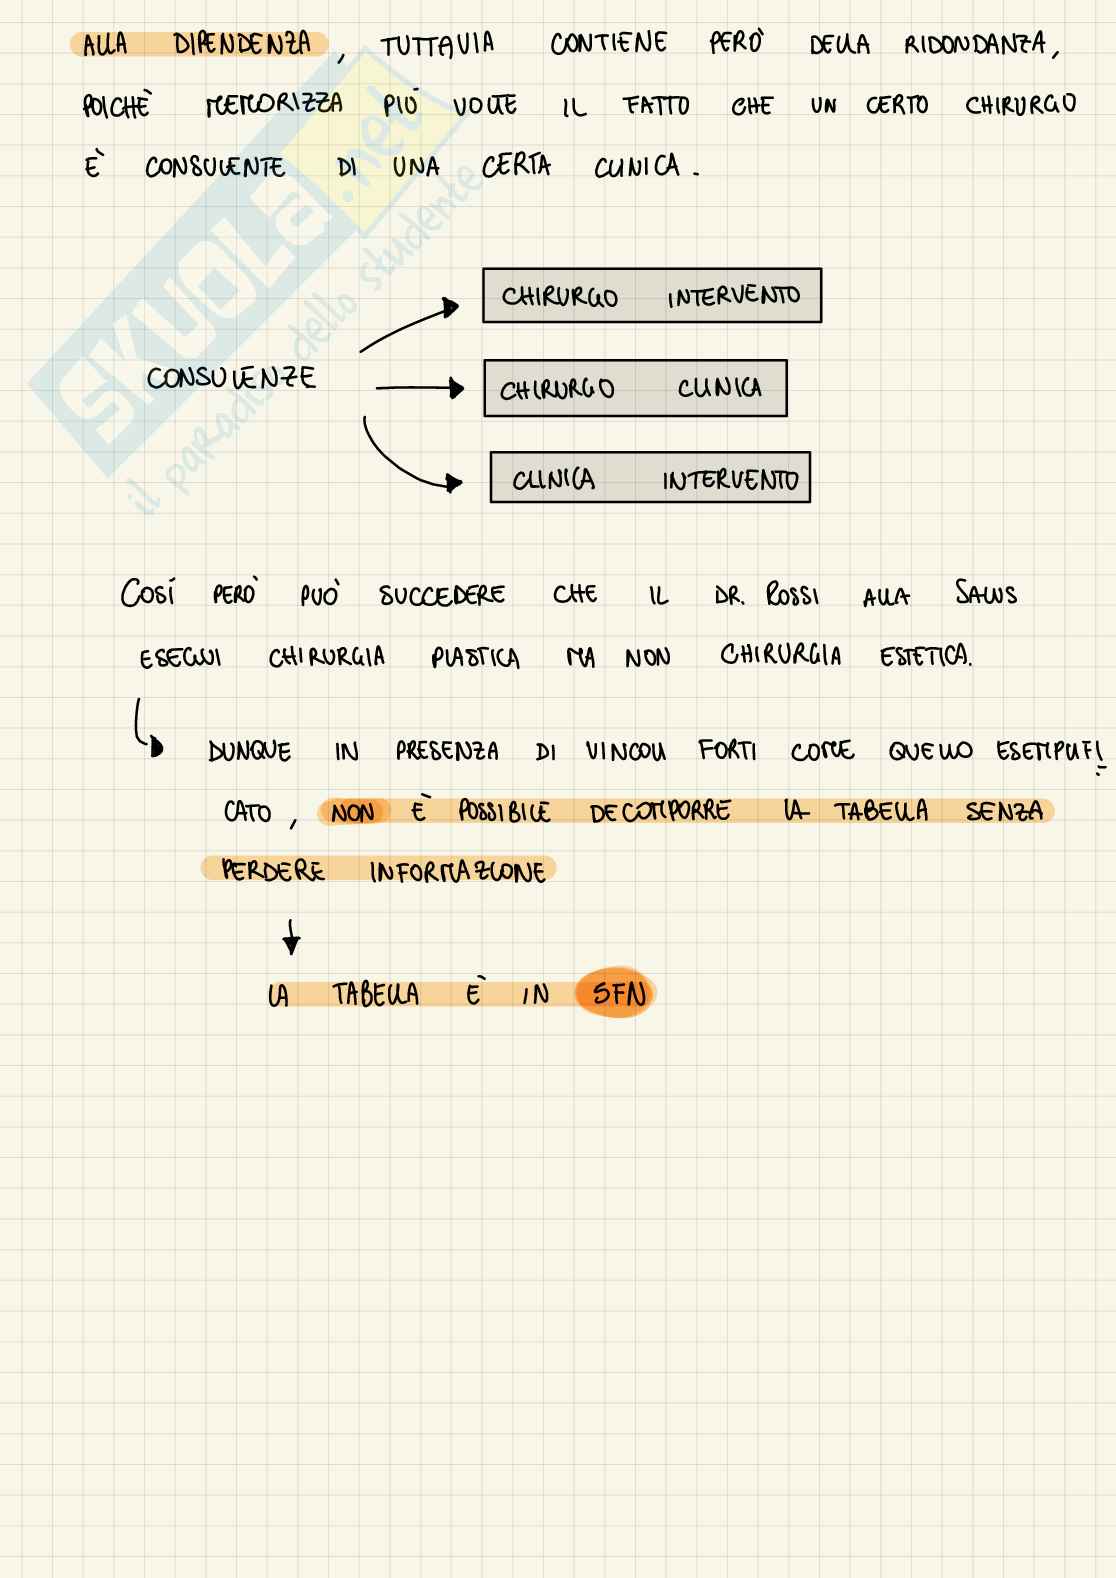 ALLA DIPENDENZA, TUTTAVIA CONTIENE PERÒ DELLA RIDONDANZA,
POICHÈ MEMORIZZA PIÙ VOLTE IL FATTO CHE UN CERTO CHIRURGO
È CONSULENTE DI UNA CERTA CLINICA.
SKUOLA.net
il paradiso dello studente
CHIRURGO INTERVENTO
CONSULENZE
CHIRURGO CLINICA
CLINICA INTERVENTO
COSÍ PERÒ PUÒ SUCCEDERE CHE IL DR. ROSSI ALLA SALUS
ESEGUI CHIRURGIA PLASTICA MA NON CHIRURGIA ESTETICA.
DUNQUE IN PRESENZA DI VINCOLI FORTI COME QUELLO ESEMPLIFI
CATO, NON È POSSIBILE DECOMPORRE LA TABELLA SENZA
PERDERE INFORMAZIONE
LA TABELLA È IN 5FN